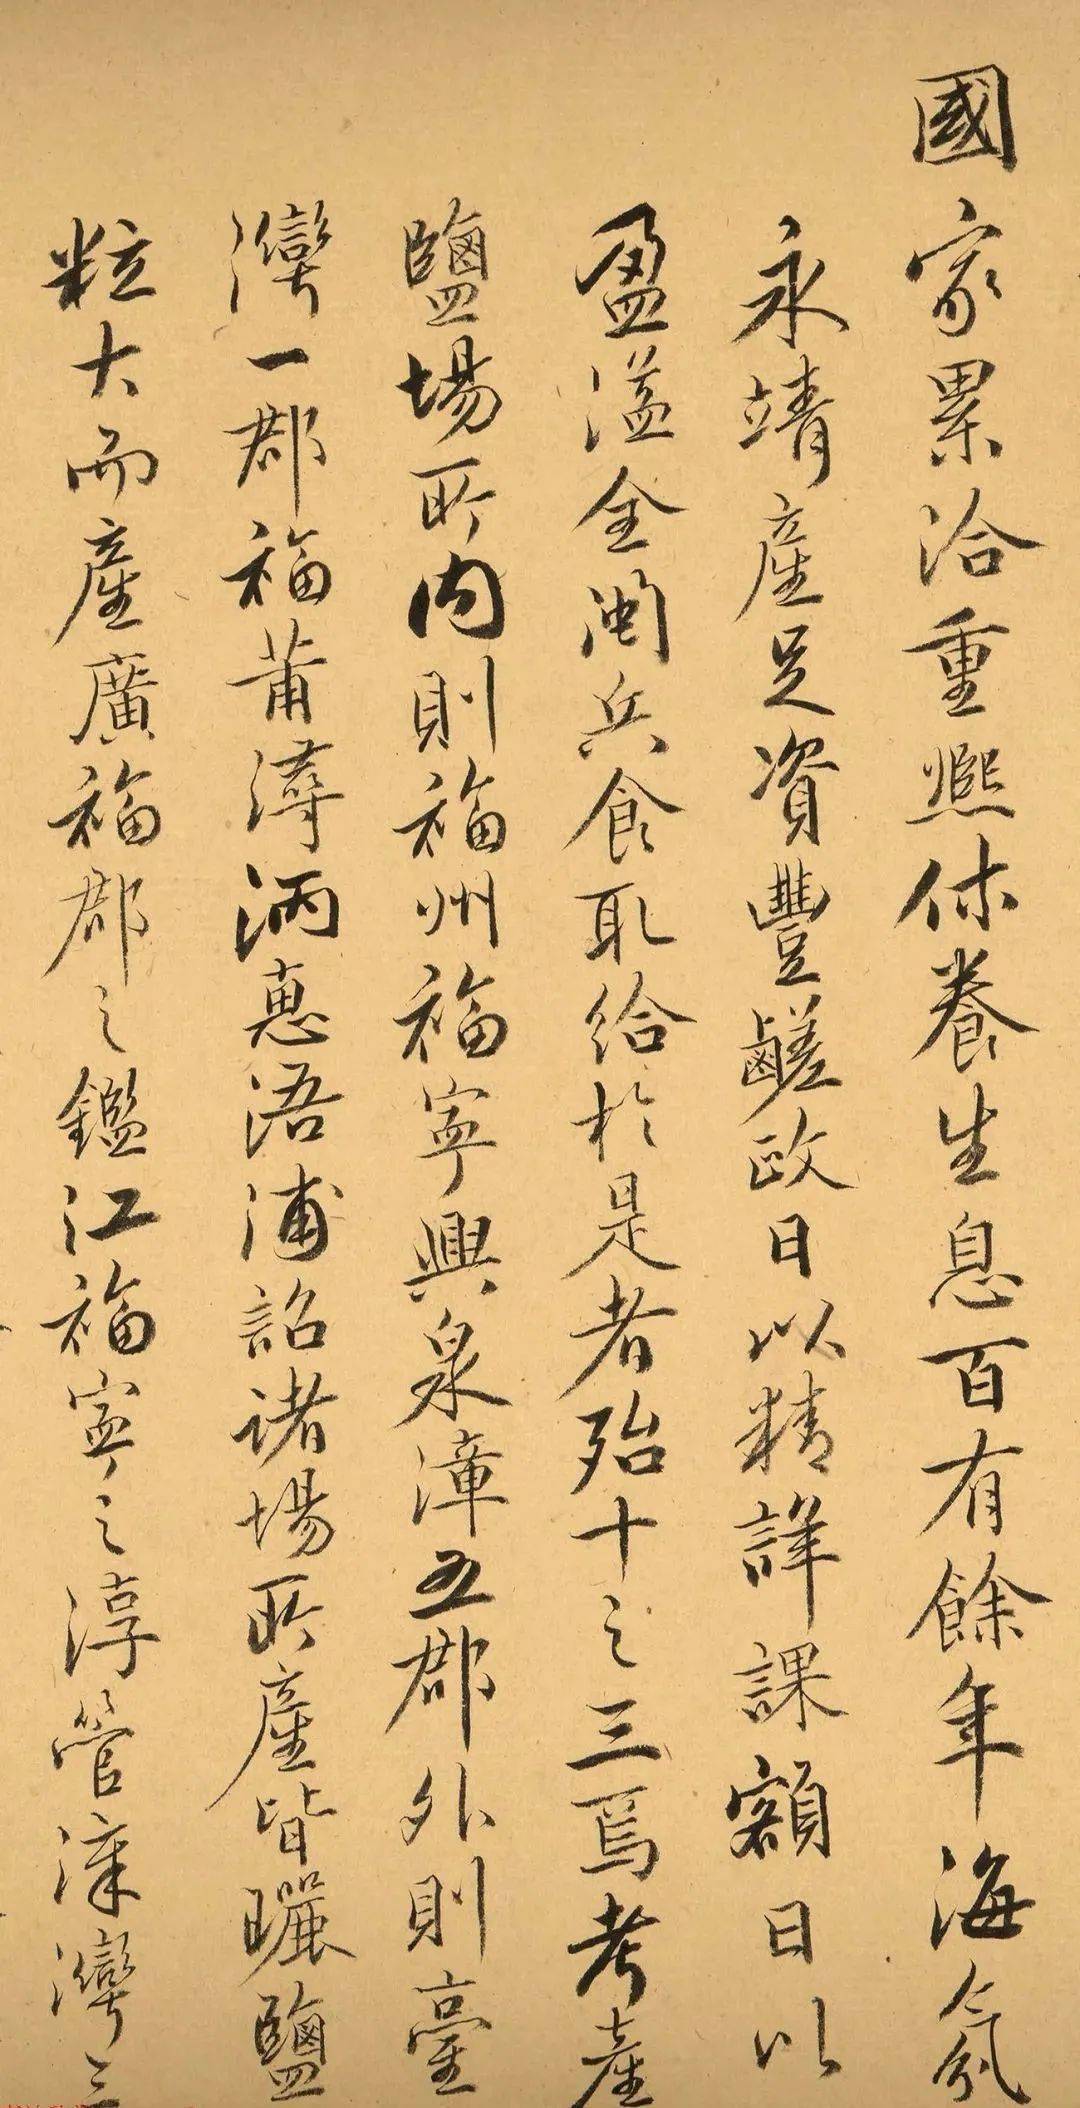 國家累洽重熙休養生息百有餘年海氛
永靖産足資豐鹺政日以精詳課額日以
盈溢全閩兵食取給於是者殆十之三焉考産
鹽場所内則福州福寧興泉漳五郡外則臺
灣一郡福莆潯洒惠浯浦詔諸場所産皆曬鹽
粒大而産廣福郡之鑑江福寧之淳管漳灣三